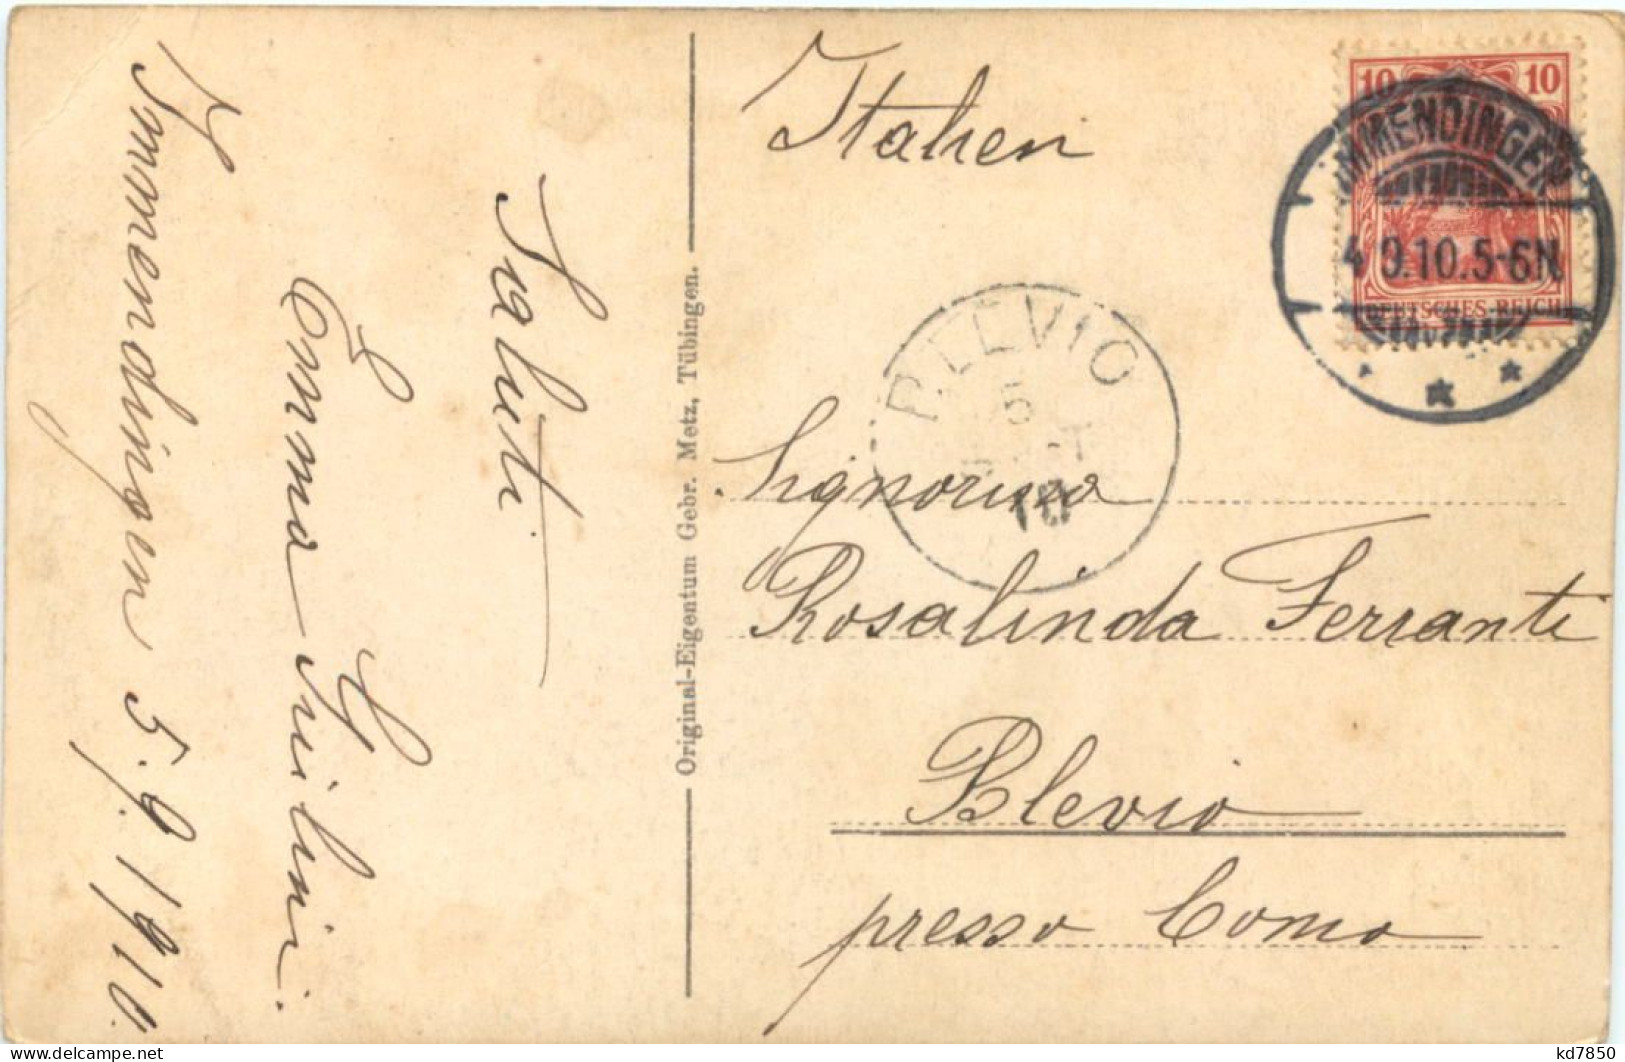 Immendingen 5.9.1910.
Emma
Saluti
Original-Eigentum Gebr. Metz, Tübingen.
Italien
10 10
DEUTSCHES REICH
IMMENDINGEN
4.9.10.5-6N
BLEVIO
5
10
Signorina
Rosalinda Ferranti
Blevio
presso Como
kd7850